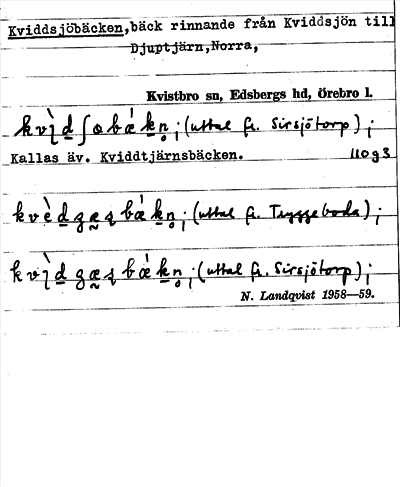 Kviddsjöbäcken, bäck rinnande från Kviddsjön till
Djuptjärn, Norra,
Kvistbro sn, Edsbergs hd, Örebro l.
(uttal fr. Sirsjötorp);
Kallas äv. Kviddtjärnsbäcken. 110g3
(uttal fr. Tryggeboda);
(uttal fr. Sirsjötorp);
N. Landqvist 1958—59.